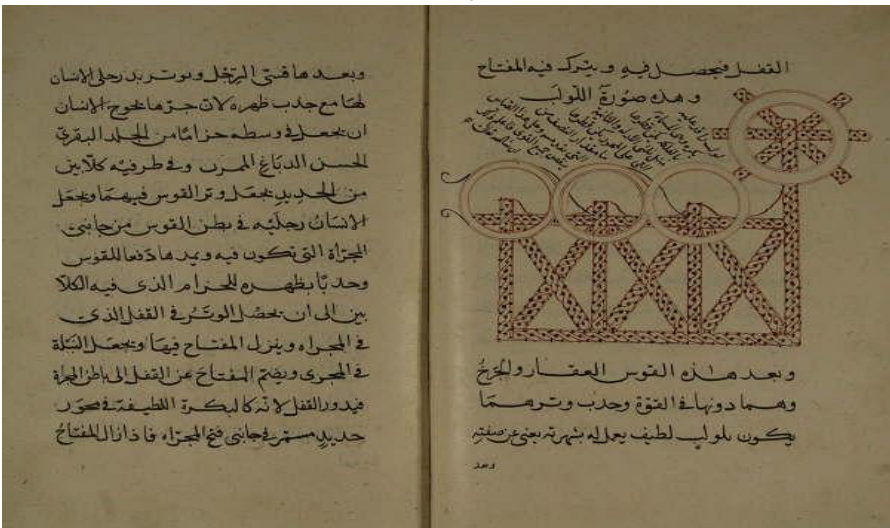 القفل فيحصل فيه ويترك فيه المفتاح
وهذه صورة اللولب
وبعد هذه القوس العقار والجرخ
وهما دونها في القوة وجذب وترهما
يكون بلولب لطيف يعمل له بشهرته يغنى عن صفته
وبعد
وبعدها قسي الرجل ويوتر بد رجلي الانسان
لها مع جذب ظهره لان جرها يحوج الانسان
ان يجعل في وسطه حزاما من الجلد البقري
الحسن الدباغ الممرن وفي طرفيه كلابين
من الحديد يجعل وتر القوس فيهما ويجعل
الانسان رجليه في بطن القوس من جانبي
المجراة التي تكون فيه ويمدها دفعا للقوس
وجذبا بظهره للحزام الذي فيه الكلا
بين الى ان يحصل الوتر في القفل الذي
في المجراه وينزل المفتاح فيها ويجعل النبلة
في المجرى ويضم المفتاح عن القفل الى باطن المجراة
فيدور القفل لانه كالبكرة اللطيفة في محور
حديد مستمر في جانبي فتح المجراه فاذا زال المفتاح